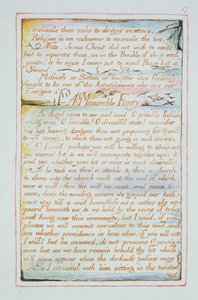 17
reconcile them seeks to destroy existence.
Religion is an endeavour to reconcile the two.
Note. Jesus Christ did not wish to unite
but to separate them, as in the Parable of sheep and
goats! & he says I came not to send Peace but a
Sword.
Messiah or Satan or Tempter was formerly
thought to be one of the Antediluvians who are our
Energies.
A Memorable Fancy
An Angel came to me and said O pitiable foolish
young man! O horrible! O dreadful state! consider
the hot burning dungeon thou art preparing for thyself
to all eternity, to which thou art going in such career.
I said. perhaps you will be willing to shew me
my eternal lot & we will contemplate together upon it
and see whether your lot or mine is most desirable
So he took me thro' a stable & thro' a church
& down into the church vault at the end of which
was a mill: thro' the mill we went, and came to a
cave. down the winding cavern we groped our tedi-
ous way till a void boundless as a nether sky ap-
peard beneath us & we held by the roots of trees
and hung over this immensity, but I said, if you
please we will commit ourselves to this void, and
see whether providence is here also, if you will not
I will? but he answerd. do not presume O young-
man but as we here remain behold thy lot which
will soon appear when the darkness passes away
So I remaind with him sitting in the twisted